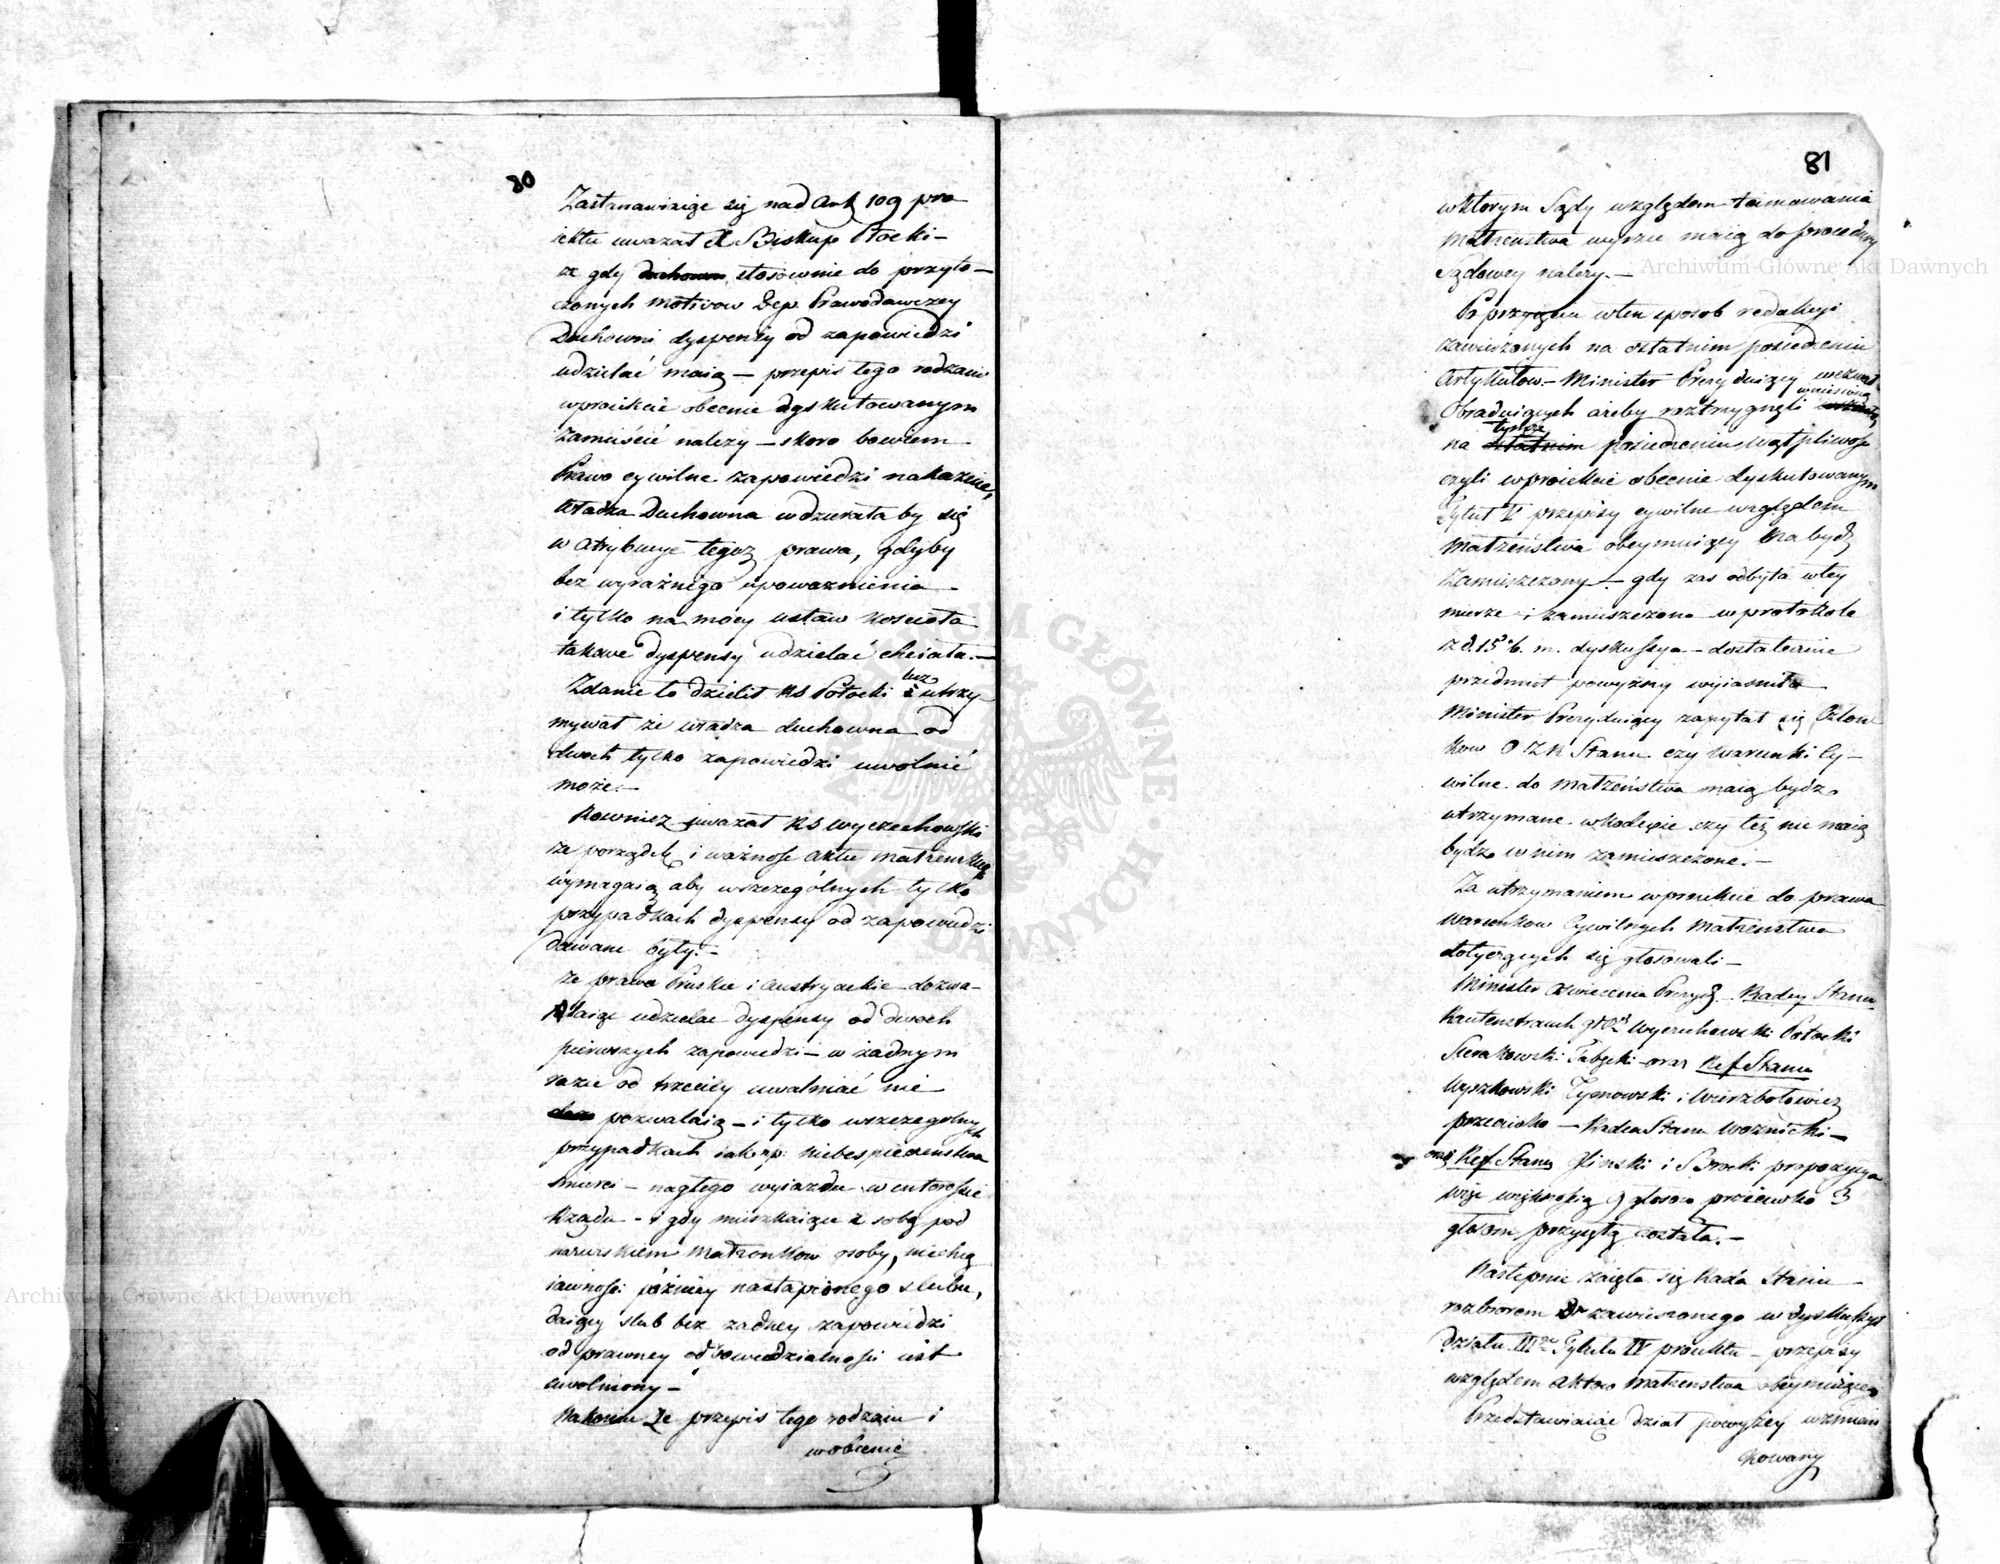 80
Zastanawiaiąc się nad Art 109 pro
iektu uważał X Biskup Płocki –
że gdy stosownie do przyto–
czonych motivow Dep. Prawodawczey
Duchowni dyspensy od zapowiedzi
udzielać maią – przepis tego rodzaiu
w proiekcie obecnie dyskutowanym
zamieścić należy – skoro bowiem
Prawo cywilne zapowiedzi nakazuie,
władza Duchowna wdzierała by się
w atrybucye tegoż prawa, gdyby
bez wyraźnego upoważnienia
i tylko na mocy ustaw kościoła
takowe dyspensy udzielać chciała. –
Zdanie to dzielił RS Potocki utrzy
mywał że władza duchowna od
dwoch tylko zapowiedzi uwolnić
może. –
Rownież uważał RS Wyczechowski
że porządek i ważność aktu małżenskiego
wymagaią aby w szczególnych tylko
przypadkach dyspensy od zapowiedzi
dawane były. –
że prawa Pruskie i Austryackie dozwa–
laiąc udzielać dyspensy od dwoch
pierwszych zapowiedzi – w żadnym
razie od trzeciey uwalniać nie
pozwalaią – i tylko w szczegolnych
przypadkach iak np: niebespieczenstwa
śmierci – nagłego wyiazdu w interessie
Rządu – i gdy mieszkaiące z sobą pod
nazwiskiem małżonkow osoby, niechcą
iawności poźniey nastąpionego slubu,
daiący slub bez żadney zapowiedzi
od prawney odpowiedzialności iest
uwolniony –
Nakoniec że przepis tego rodzaiu i
w obecnie
81
w ktorym Sądy względem tamowania
małżenstwa wyrzec maią do procedury
Sądowey należy. –
Po przyięciu w ten sposob redakcyi
zawieszonych na ostatnim posiedzeniu
Artykułow – Minister Prezyduiący wezwał
Obraduiących ażeby roztrzygnęli wniesioną
na tymże posiedzeniu wątpliwość
czyli w proiekcie obecnie dyskutowanym
Tytuł V przepisy cywilne względem
Małżeństwa obeymuiący ma bydź
zamieszczony – gdy zaś odbyta w tey
mierze i zamieszczona w protokole
z d. 15 b. m. dyskussya – dostatecznie
przedmiot powyższy wyiaśniła
Minister Prezyduiący zapytał się Człon
kow O Z R Stanu czy warunki Cy–
wilne do małżeństwa maią bydź
utrzymane w kodexie czy też nie maią
bydź w nim zamieszczone. –
Za utrzymaniem w proiekcie do prawa
warunkow Cywilnych małżenstwa
dotyczących się głosowali –
Minister Oswiecenia Prezyd. Radcy Stanu
Rautenstrauch Wyczechowski Potocki
Sierakowski oraz Ref Stanu
Wyszkowski Tymowski i Wierzbołowicz
przeciwko – Radca Stanu Woźnicki –
oraz Ref. Stanu Gliński i Brocki propozycya
więc większością 9 głosow przeciwko 3
głosom przyiętą została. –
Następnie zaięła się Rada Stanu
rozbiorem zawieszonego w dyskussyi
działu III Tytułu IV proiektu – przepisy
względem aktow małżenstwa obeymuiącego
Przedstawiaiąc dział powyżey wzmian
kowany
Archiwum Główne Akt Dawnych
Archiwum Główne Akt Dawnych
ARCHIWUM GŁÓWNE AKT DAWNYCH